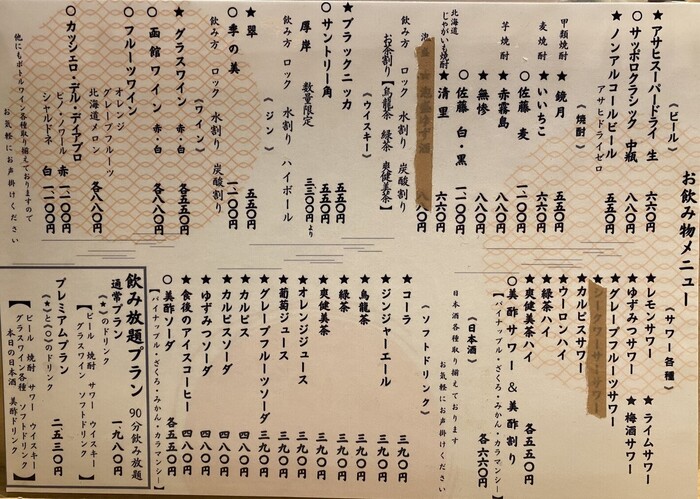 お飲み物メニュー
（ビール）
★アサヒスーパードライ 生 六六〇円
○サッポロクラシック 中瓶 八八〇円
★ノンアルコールビール 五五〇円
アサヒドライゼロ
（焼酎）
甲類焼酎 ★鏡月 五五〇円
麦焼酎 ★いいちこ 六六〇円
○佐藤 麦 一一〇〇円
芋焼酎 ★赤霧島 八八〇円
★無惨 八八〇円
○佐藤 白・黒 一一〇〇円
北海道じゃがいも焼酎 ★清里 六六〇円
飲み方 ロック 水割り 炭酸割り
お茶割り【烏龍茶 緑茶 爽健美茶】
（ウイスキー）
★ブラックニッカ 五五〇円
○サントリー角 五五〇円
厚岸 数量限定 三三〇〇円より
飲み方 ロック 水割り ハイボール
（ジン）
★翠 五五〇円
○季の美 一一〇〇円
飲み方 ロック 水割り 炭酸割り
（ワイン）
★グラスワイン 赤・白 各五五〇円
○函館ワイン 赤・白 各八八〇円
○フルーツワイン 各八八〇円
オレンジ
グレープフルーツ
北海道メロン
○カッシェロ・デル・ディアブロ
ピノ・ノワール 赤 一一〇〇円
シャルドネ 白 一一〇〇円
他にもボトルワイン各種取り揃えておりますので
お気軽にお声掛けください
（サワー各種）
★レモンサワー ★ライムサワー
★ゆずみつサワー ★梅酒サワー
★グレープフルーツサワー
★シークワーサーサワー
★カルピスサワー
★ウーロンハイ
★緑茶ハイ
★爽健美茶ハイ 各五五〇円
○美酢サワー ＆ 美酢割り 各六六〇円
【パイナップル・ざくろ・みかん・カラマンシー】
（日本酒）
日本酒各種取り揃えております
お気軽にお声掛けください
（ソフトドリンク）
★コーラ 三九〇円
★ジンジャーエール 三九〇円
★烏龍茶 三九〇円
★緑茶 三九〇円
★爽健美茶 三九〇円
★オレンジジュース 三九〇円
★葡萄ジュース 三九〇円
★グレープフルーツソーダ 三九〇円
★カルピス 四八〇円
★カルピスソーダ 四八〇円
★ゆずみつソーダ 四八〇円
★食後のアイスコーヒー 四八〇円
○美酢ソーダ 各五五〇円
【パイナップル・ざくろ・みかん・カラマンシー】
飲み放題プラン 90分飲み放題
通常プラン 一、九八〇円
（★）のドリンク
【ビール 焼酎 サワー ウイスキー
グラスワイン ソフトドリンク】
プレミアムプラン 二、五三〇円
（★）と（○）のドリンク
【ビール 焼酎 サワー ウイスキー
グラスワイン各種 ソフトドリンク
本日の日本酒 美酢ドリンク】